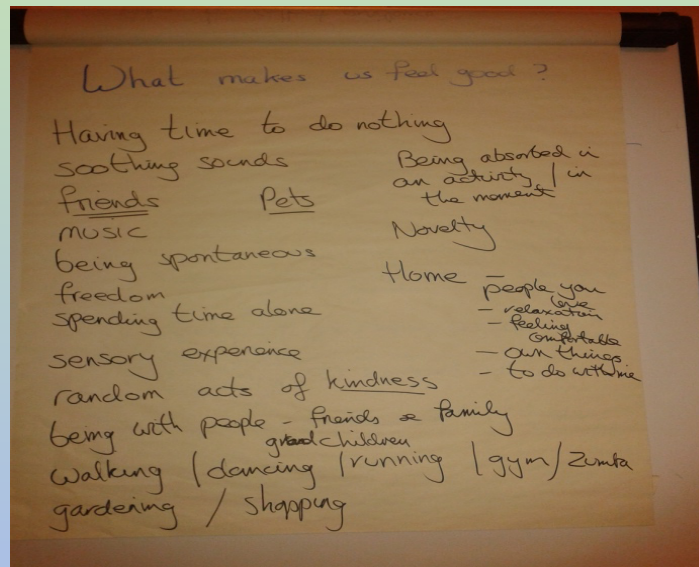 What makes us feel good?
Having time to do nothing
soothing sounds
friends Pets
music
being spontaneous
freedom
spending time alone
sensory experience
random acts of kindness
being with people - friends & family
grandchildren
walking / dancing / running / gym / Zumba
gardening / shopping
Being absorbed in
an activity / in
the moment
Novelty
Home - people you
love
- relaxation
- feeling
comfortable
- own things
- to do with me